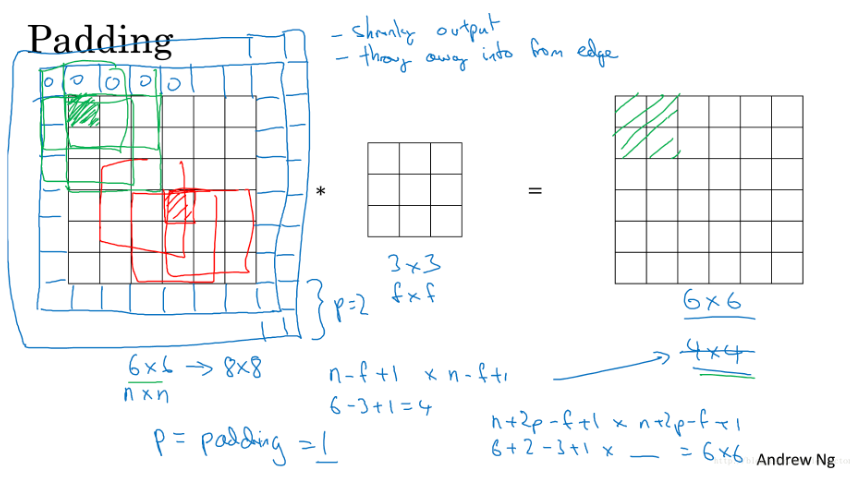 Padding
- shrinky output
- throw away info from edge
0 0 0 0 0
*
=
3 × 3
f × f
p=2
6 × 6
4 × 4
6 × 6 → 8 × 8
n × n
n-f+1 × n-f+1
6-3+1=4
p = padding = 1
n+2p-f+1 × n+2p-f+1
6+2-3+1 × __ = 6×6
Andrew Ng